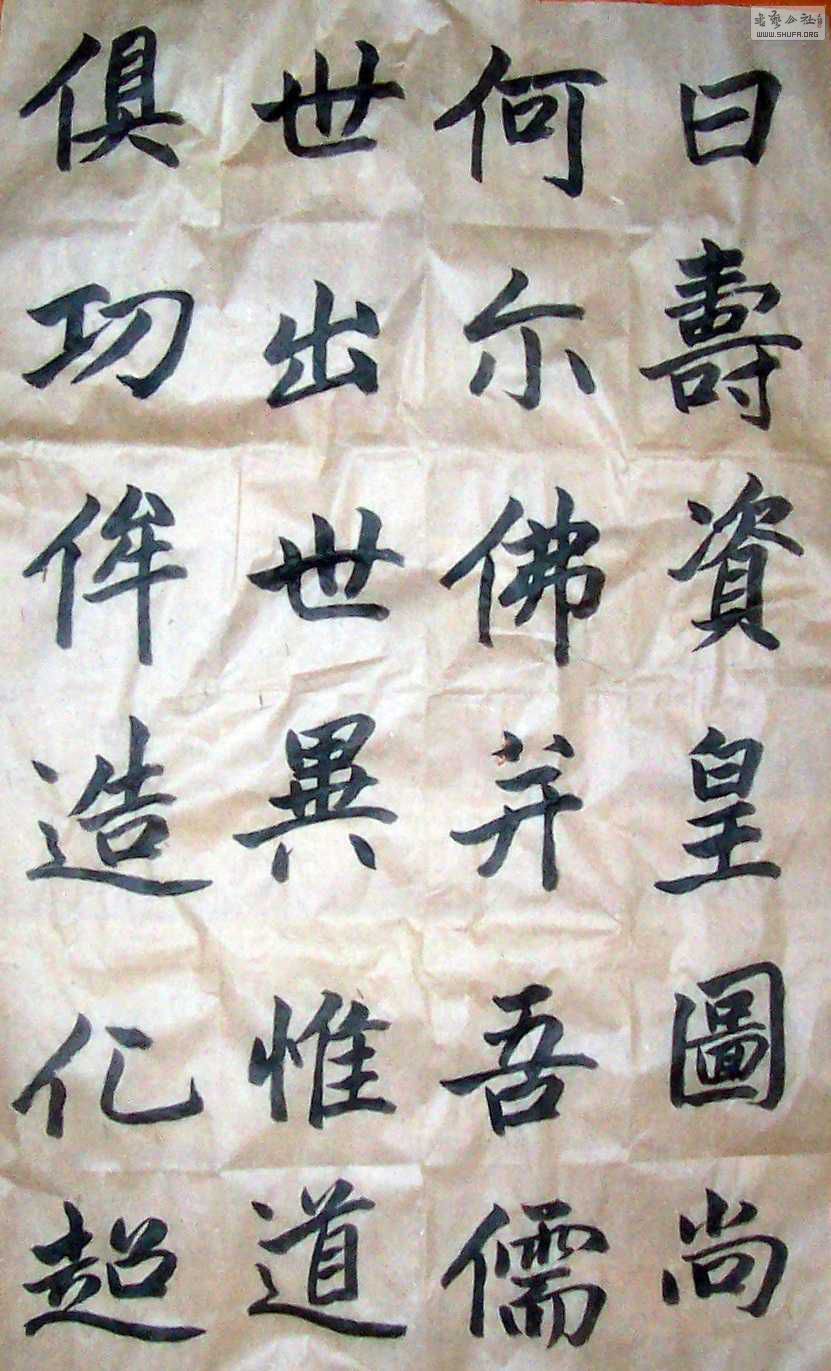 曰壽資皇圖尚
何尔佛并吾儒
世出世異惟道
俱功侔造化超
書藝公社
WWW.SHUFA.ORG